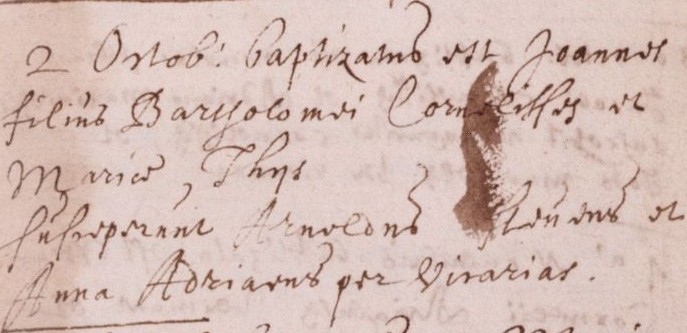 2 Octob: baptizatus est Joannes
filius Bartholomei Cornelisses et
Mariæ, Thys
susceperunt Arnoldus Stevens et
Anna Adriaens per vicarias.